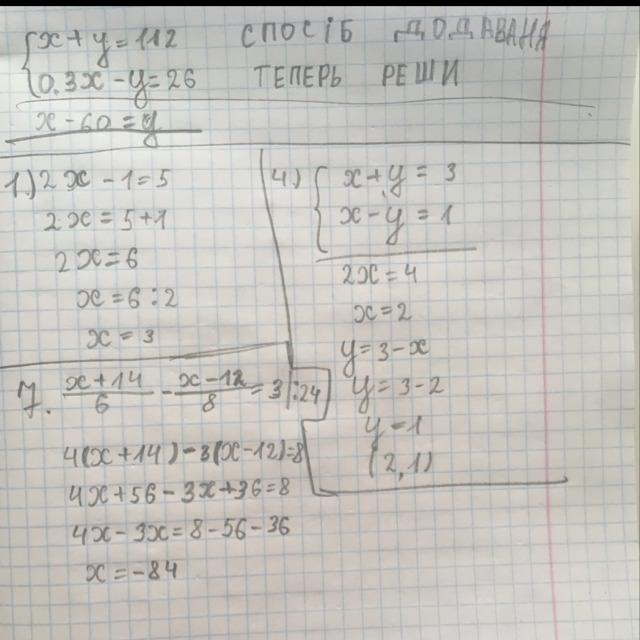 x + y = 112 СПОСІБ ДОДАВАНЯ
0,3x - y = 26 ТЕПЕРЬ РЕШИ
x - 60 = y
1.) 2x - 1 = 5
2x = 5 + 1
2x = 6
x = 6 : 2
x = 3
4.) x + y = 3
x - y = 1
2x = 4
x = 2
y = 3 - x
y = 3 - 2
y = 1
(2, 1)
7. (x + 14)/6 - (x - 12)/8 = 3 | · 24
4(x + 14) - 3(x - 12) = 8
4x + 56 - 3x + 36 = 8
4x - 3x = 8 - 56 - 36
x = -84